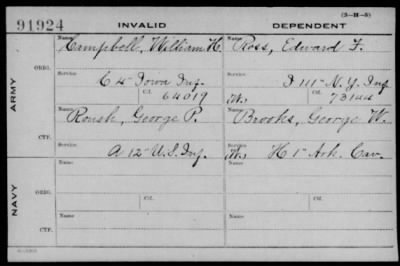 (3-H-5)
91924 INVALID DEPENDENT
Name Name
Campbell, William H. Ross, Edward F.
ORIG.
Service Service
C 4" Iowa Inf. I 111" N.Y. Inf
Ctf. Ctf.
64019 W.
ARMY
Name Name
Roush, George P. Brooks, George W.
CTF.
Service Service
A 12" U.S. Inf. W. H 1" Ark. Cav.
Name Name
ORIG.
Service Service
Ctf. Ctf.
NAVY
Name Name
CTF.
Service Service